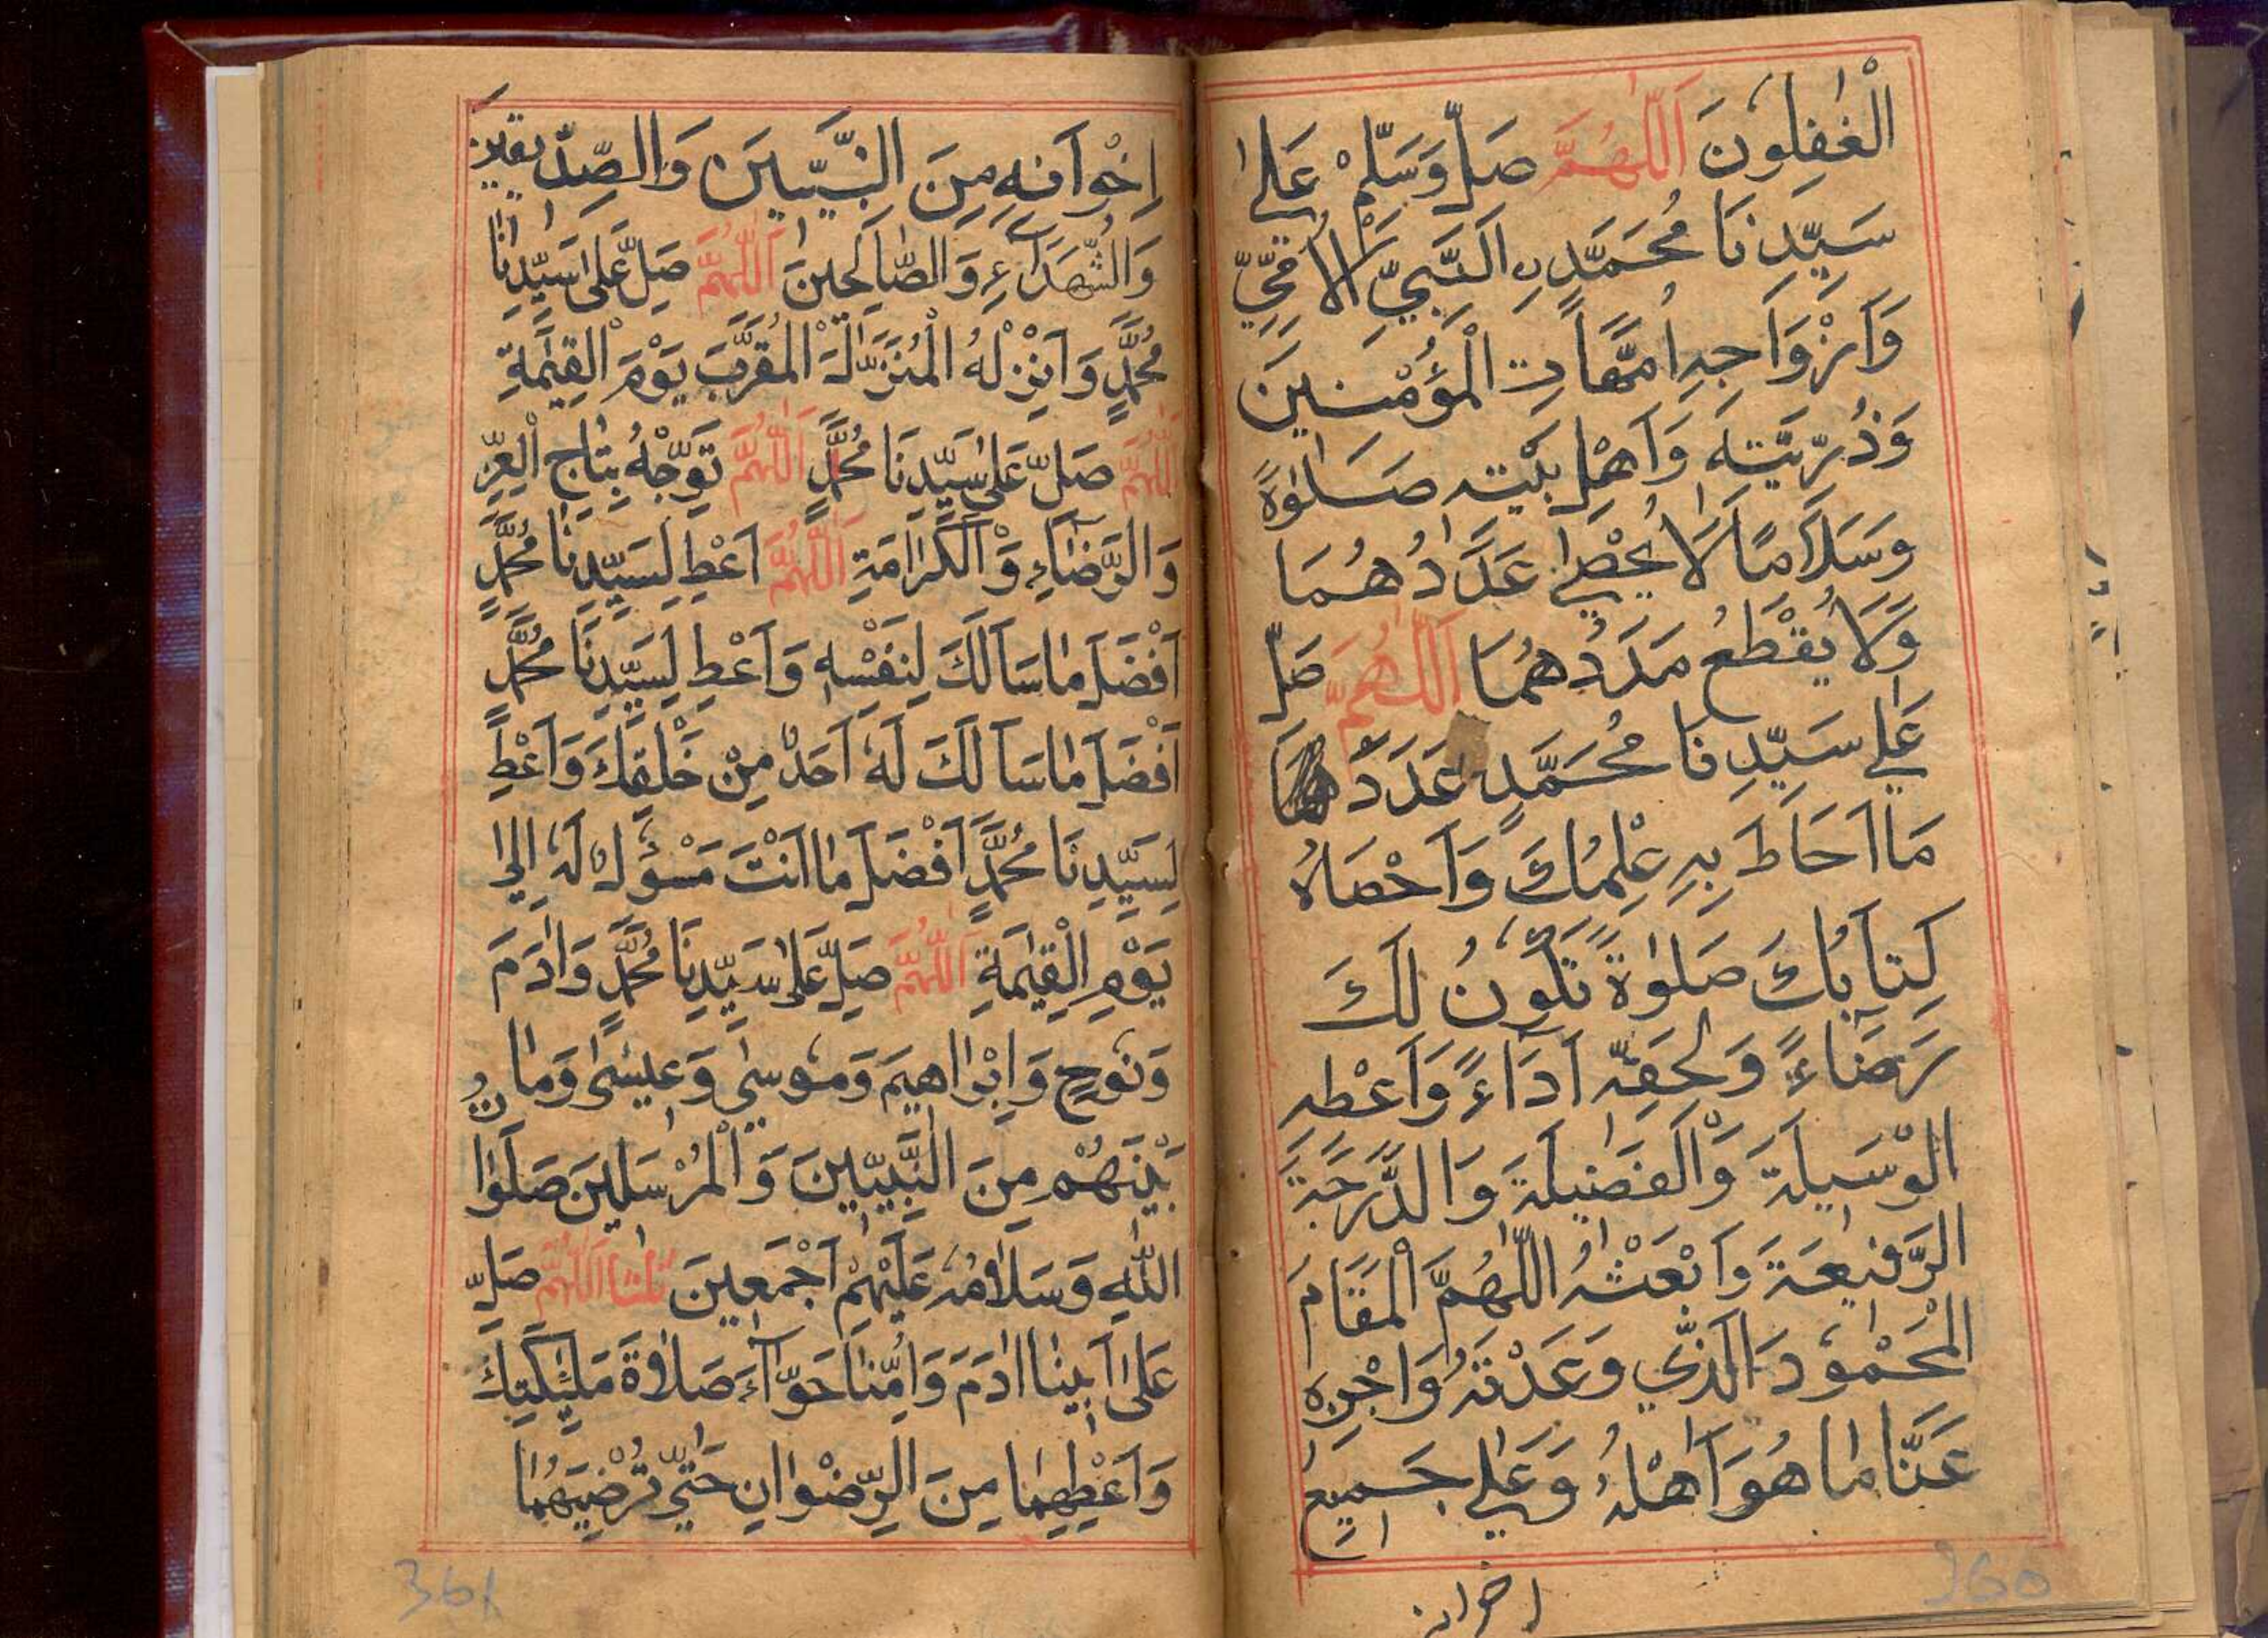 الْغٰفِلُونَ اَللّٰهُمَّ صَلِّ وَسَلِّمْ عَلٰى
سَيِّدِنَا مُحَمَّدٍ اِلنَّبِيِّ الْاُمِّيِّ
وَاَزْوَاجِهٖ اُمَّهَاتِ الْمُؤْمِنِينَ
وَذُرِّيَّتِهٖ وَاَهْلِ بَيْتِهٖ صَلٰوةً
وَسَلَامًا لَا يُحْصٰى عَدَدُهُمَا
وَلَا يُقْطَعُ مَدَدُهُمَا اَللّٰهُمَّ صَلِّ
عَلٰى سَيِّدِنَا مُحَمَّدٍ عَدَدَ
مَا اَحَاطَ بِهٖ عِلْمُكَ وَاَحْصَاهُ
كِتَابُكَ صَلٰوةً تَكُونُ لَكَ
رَضَاءً وَلِحَقِّهٖ اَدَاءً وَاَعْطِهِ
الْوَسِيلَةَ وَالْفَضِيلَةَ وَالدَّرَجَةَ
الرَّفِيعَةَ وَابْعَثْهُ اللّٰهُمَّ الْمَقَامَ
الْمَحْمُودَ الَّذِي وَعَدْتَهٗ وَاجْزِهٖ
عَنَّا مَا هُوَ اَهْلُهٗ وَعَلٰى جَمِيعِ
اخوانه
اِخْوَانِهٖ مِنَ النَّبِيِّينَ وَالصِّدِّيقِينَ
وَالشُّهَدَاءِ وَالصَّالِحِينَ اَللّٰهُمَّ صَلِّ عَلٰى سَيِّدِنَا
مُحَمَّدٍ وَاَنْزِلْهُ الْمُنْزَلَةَ الْمُقَرَّبَ يَوْمَ الْقِيٰمَةِ
اَللّٰهُمَّ صَلِّ عَلٰى سَيِّدِنَا مُحَمَّدٍ اَللّٰهُمَّ تَوِّجْهُ بِتَاجِ الْعِزِّ
وَالرِّضَاءِ وَالْكَرَامَةِ اَللّٰهُمَّ اَعْطِ لِسَيِّدِنَا مُحَمَّدٍ
اَفْضَلَ مَا سَاَلَكَ لِنَفْسِهٖ وَاَعْطِ لِسَيِّدِنَا مُحَمَّدٍ
اَفْضَلَ مَا سَاَلَكَ لَهٗ اَحَدٌ مِنْ خَلْقِكَ وَاَعْطِ
لِسَيِّدِنَا مُحَمَّدٍ اَفْضَلَ مَا اَنْتَ مَسْؤُلٌ لَهٗ اِلٰى
يَوْمِ الْقِيٰمَةِ اَللّٰهُمَّ صَلِّ عَلٰى سَيِّدِنَا مُحَمَّدٍ وَاٰدَمَ
وَنُوحٍ وَاِبْرَاهِيمَ وَمُوسٰى وَعِيسٰى وَمَا
بَيْنَهُمْ مِنَ النَّبِيِّينَ وَالْمُرْسَلِينَ صَلَوَاتُ
اللّٰهِ وَسَلَامُهٗ عَلَيْهِمْ اَجْمَعِينَ ثلثا اَللّٰهُمَّ صَلِّ
عَلٰى اَبِينَا اٰدَمَ وَاُمِّنَا حَوَّاءَ صَلَاةَ مَلٰئِكَتِكَ
وَاَعْطِهِمَا مِنَ الرِّضْوَانِ حَتّٰى تُرْضِيَهُمَا
360
361